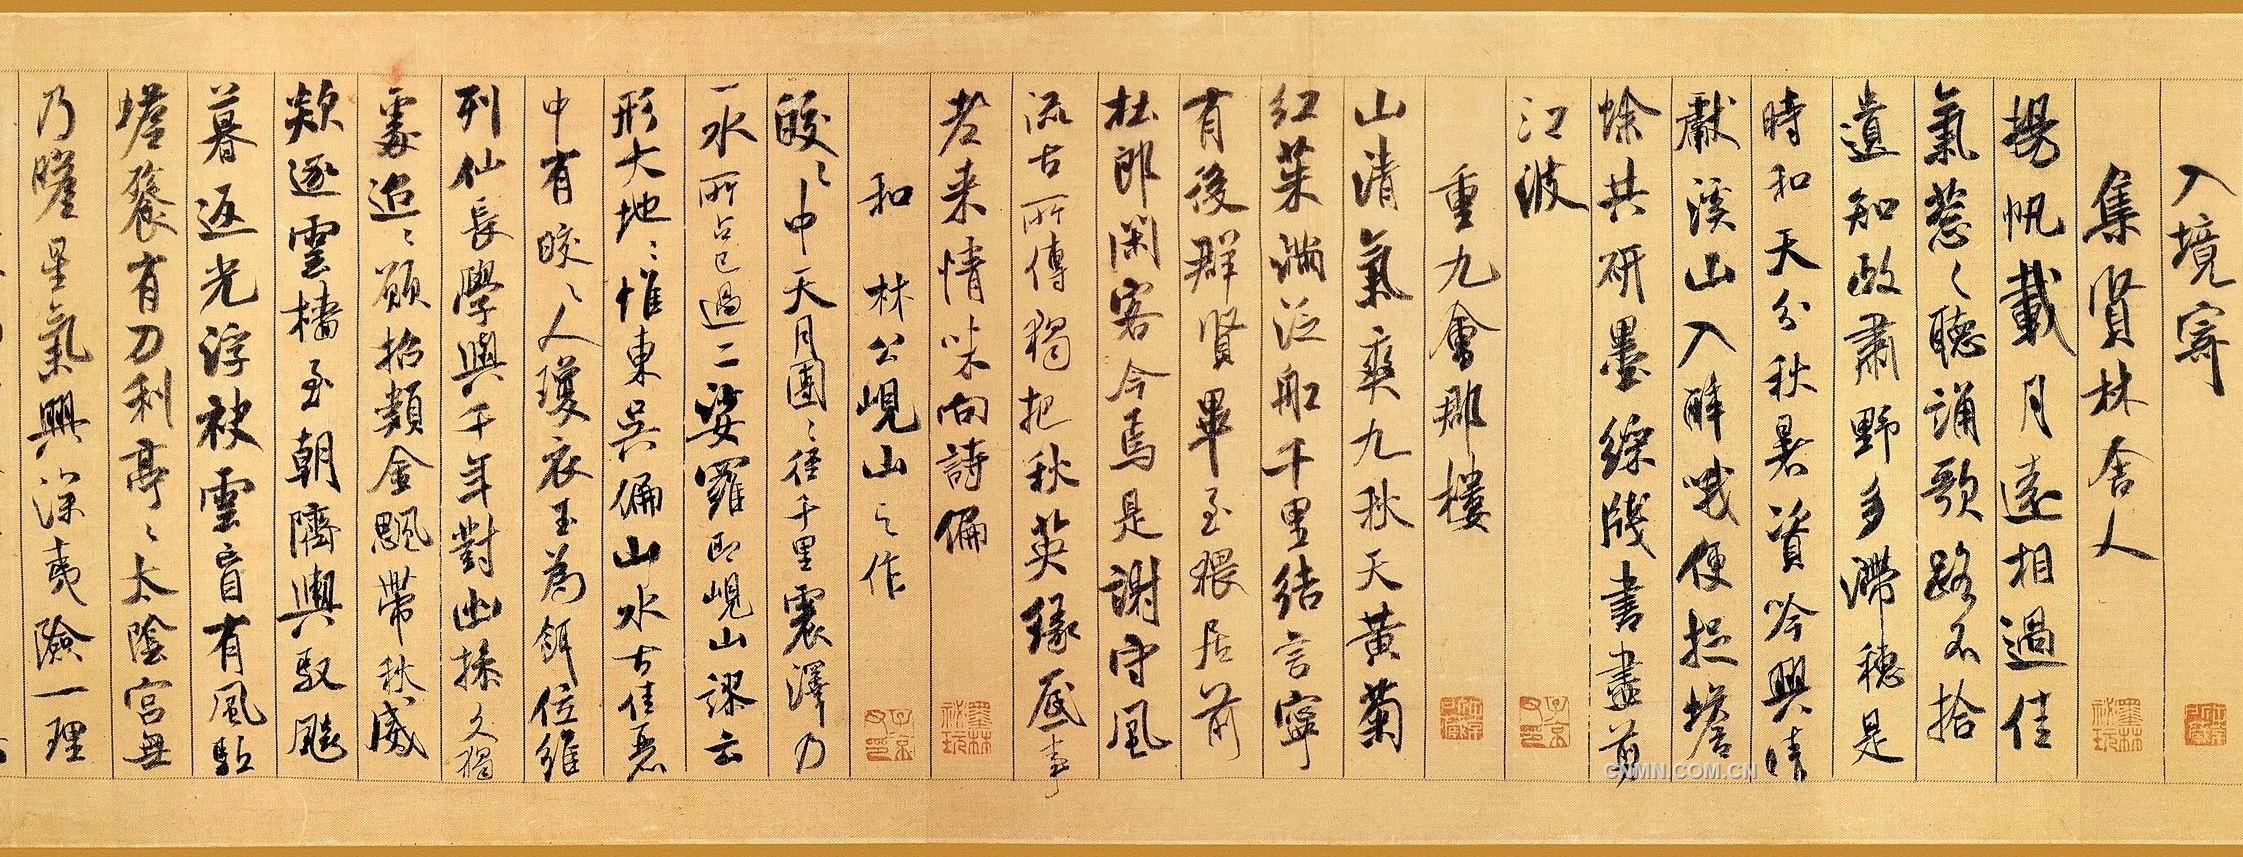 入境寄
集賢林舍人
揚帆載月遠相過佳
氣葱〻聽誦歌路不拾
遺知政肅野多滯穗是
時和天分秋暑資吟興晴
獻溪山入醉哦便捉蟾
蜍共研墨綵牋書盡剪
江波
重九會郡樓
山清氣爽九秋天黃菊
紅茱滿泛船千里結言寧
有後群賢畢至猥居前
杜郎閑客今焉是謝守風
流古所傳獨把秋英緣底事
老来情味向詩偏
和林公峴山之作
皎〻中天月團〻徑千里震澤乃
一水所占已過二娑羅即峴山謬云
形大地〻惟東吳偏山水古佳麗
中有皎〻人瓊衣玉為餌位維
列仙長學與千年對幽操久獨
處迢〻願招類金颸帶秋威
欻逐雲檣至朝隮輿馭飈
暮返光浮袂雲盲有風駈
蟾餮有刀利亭〻太陰宮無
乃瞻星氣興深夷險一理
CNMN.COM.CN